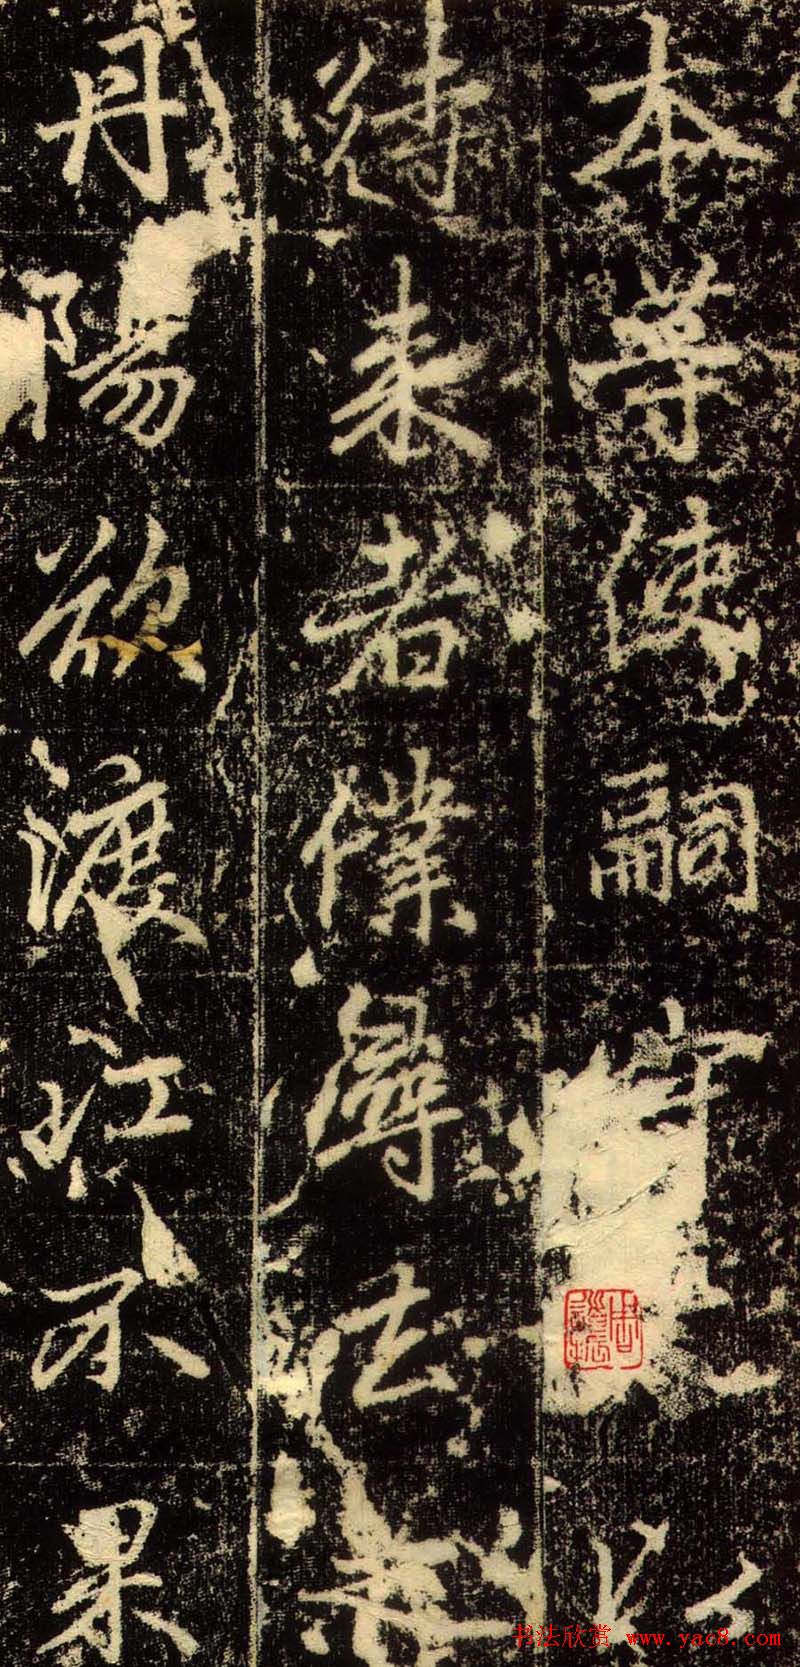 本等使嗣守以
待來者僕尋去
丹陽欲渡江不果
书法欣赏 www.yac8.com